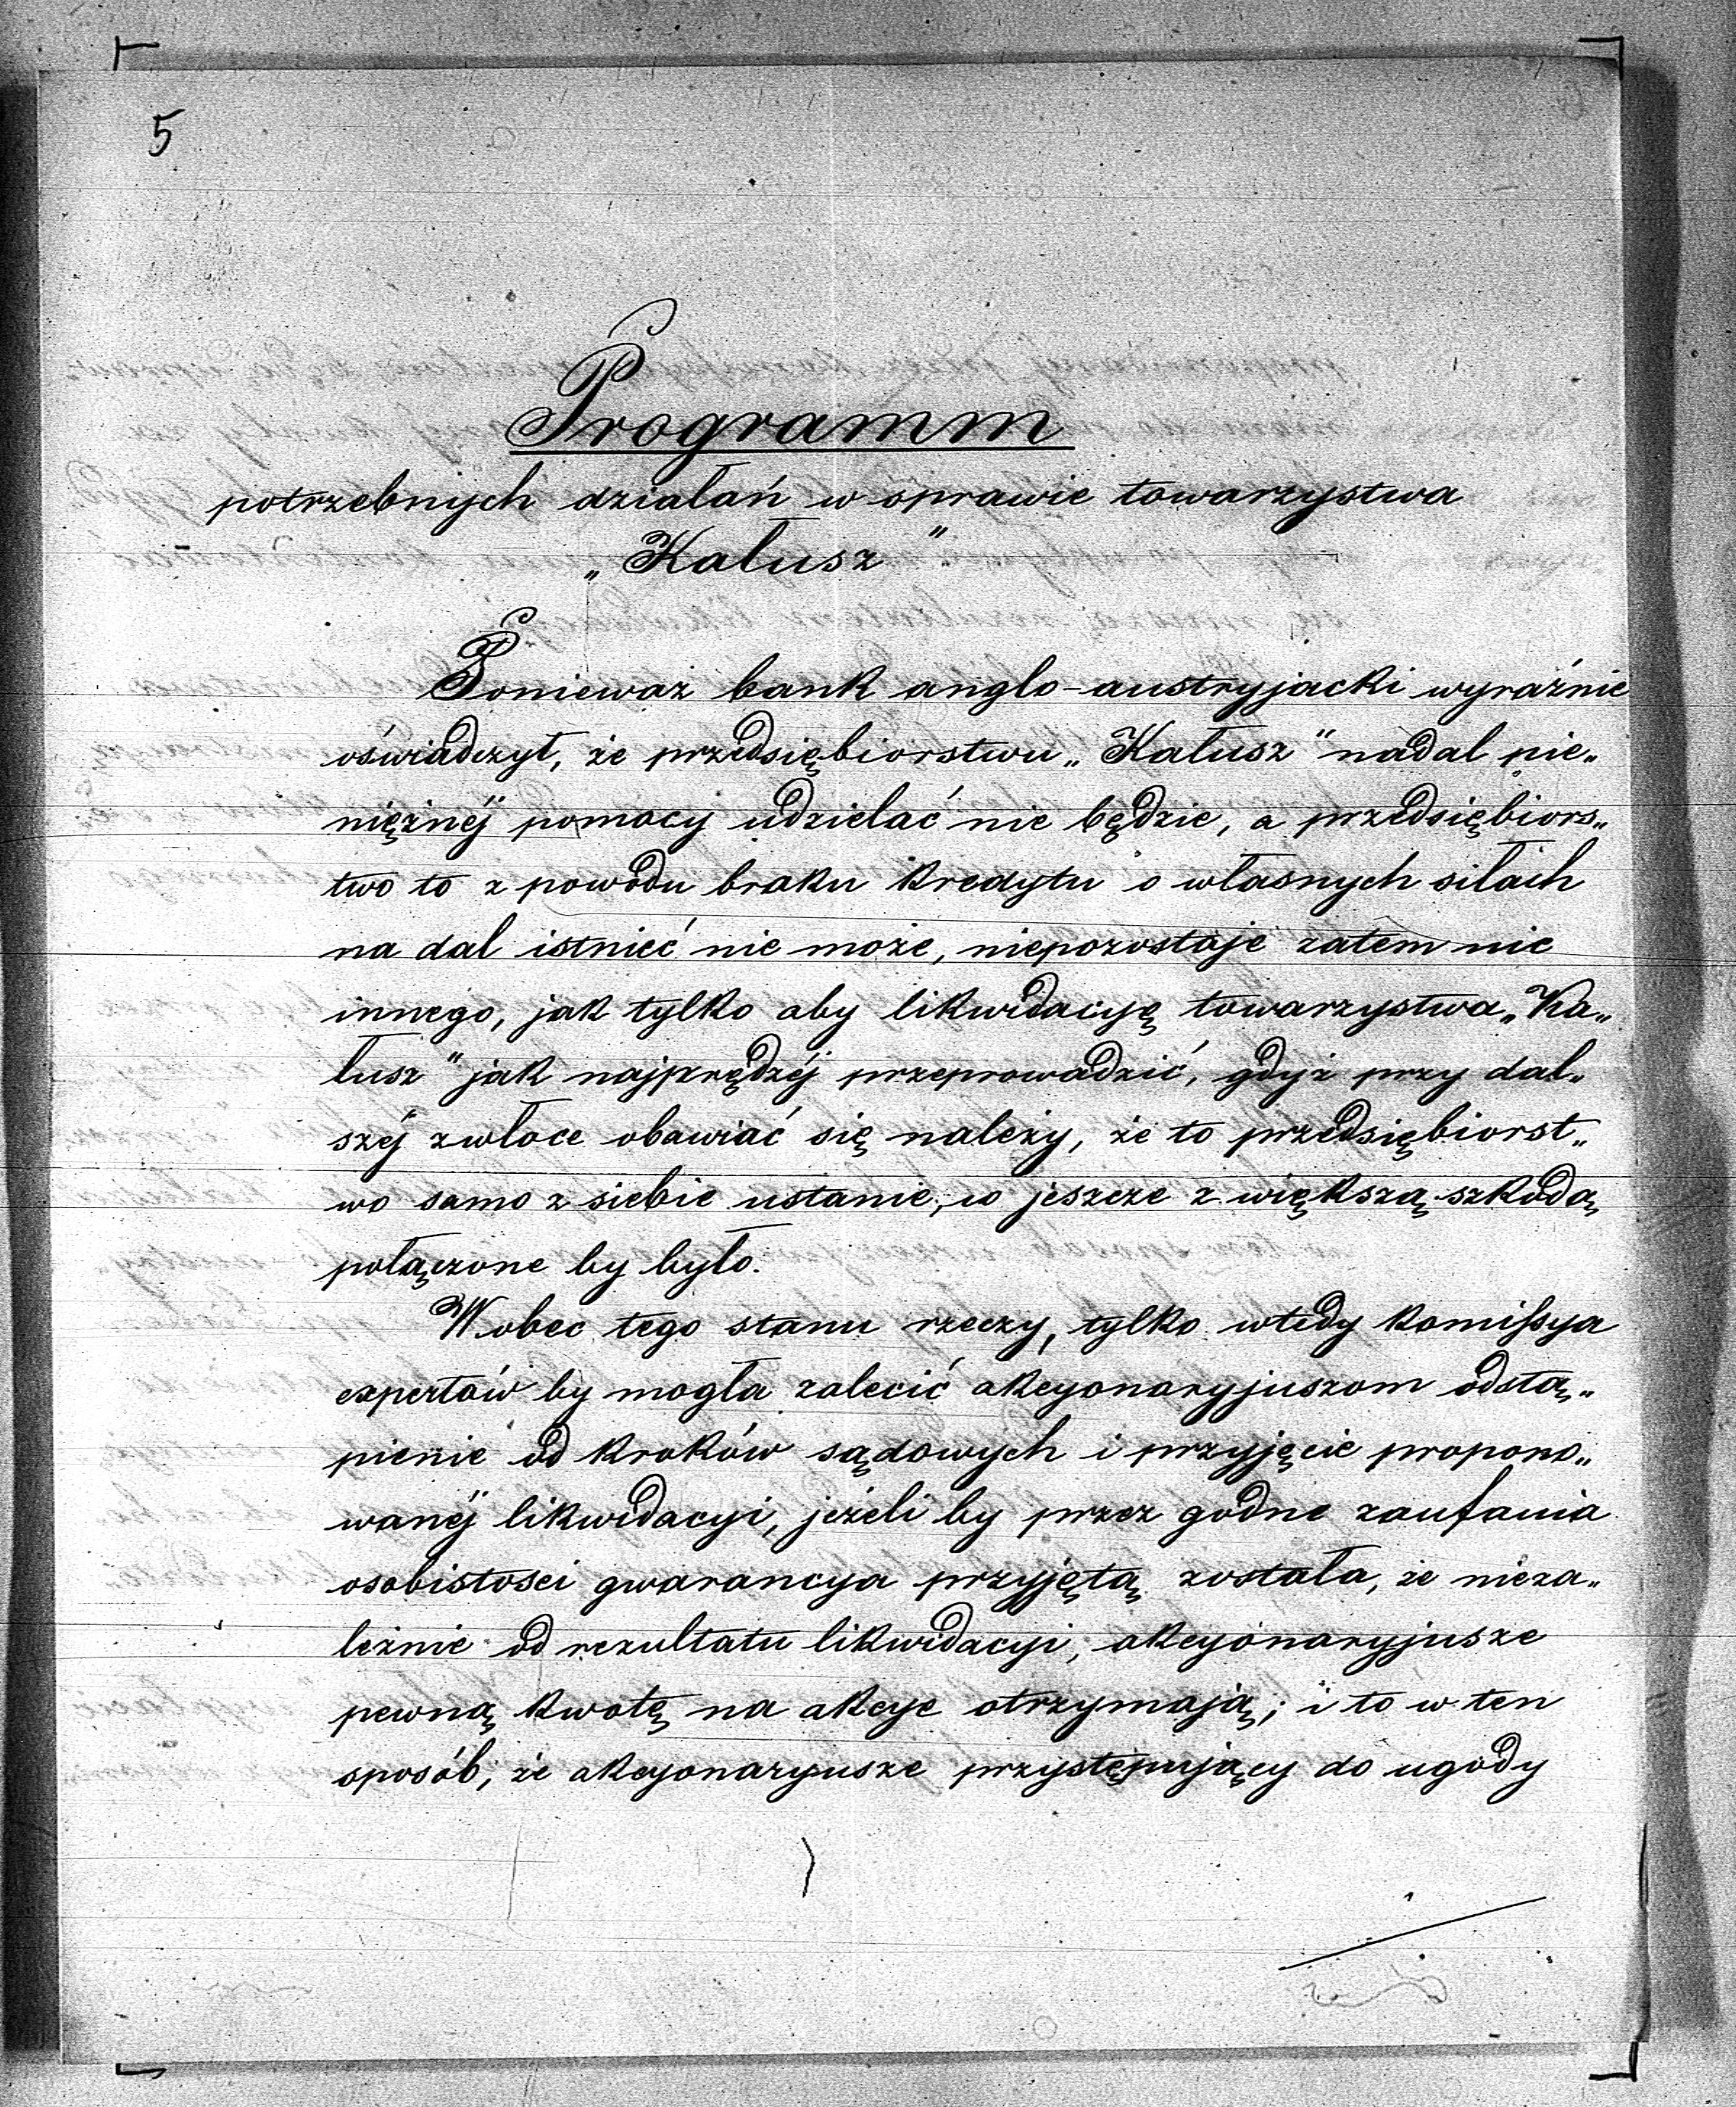 5
Programm
potrzebnych działań w sprawie towarzystwa
„Kałusz"
Ponieważ bank anglo-austryjacki wyraźnie
oświadczył, że przedsiębiorstwu „Kałusz" nadal pie„
niężnéj pomocy udzielać nie będzie, a przedsiębiors„
two to z powodu braku kredytu o własnych siłach
na dal istnieć nie może, niepozostaje zatem nic
innego, jak tylko aby likwidacyę towarzystwa „Ka„
łusz" jak najprędzéj przeprowadzić, gdyż przy dal„
széj zwłoce obawiać się należy, że to przedsiębiorst„
wo samo z siebie ustanie, co jeszcze z większą szkodą
połączone by było.
Wobec tego stanu rzeczy, tylko wtedy komissya
expertów by mogła zalecić akcyonaryjuszom odstą„
pienie od kroków sądowych i przyjęcie propono„
wanéj likwidacyi, jeżeli by przez godne zaufania
osobistosci gwarancya przyjętą została, że nieza„
leżnie od rezultatu likwidacyi, akcyonaryjusze
pewną kwotę na akcye otrzymają; i to w ten
sposób, że akcyonaryusze przystępujący do ugody